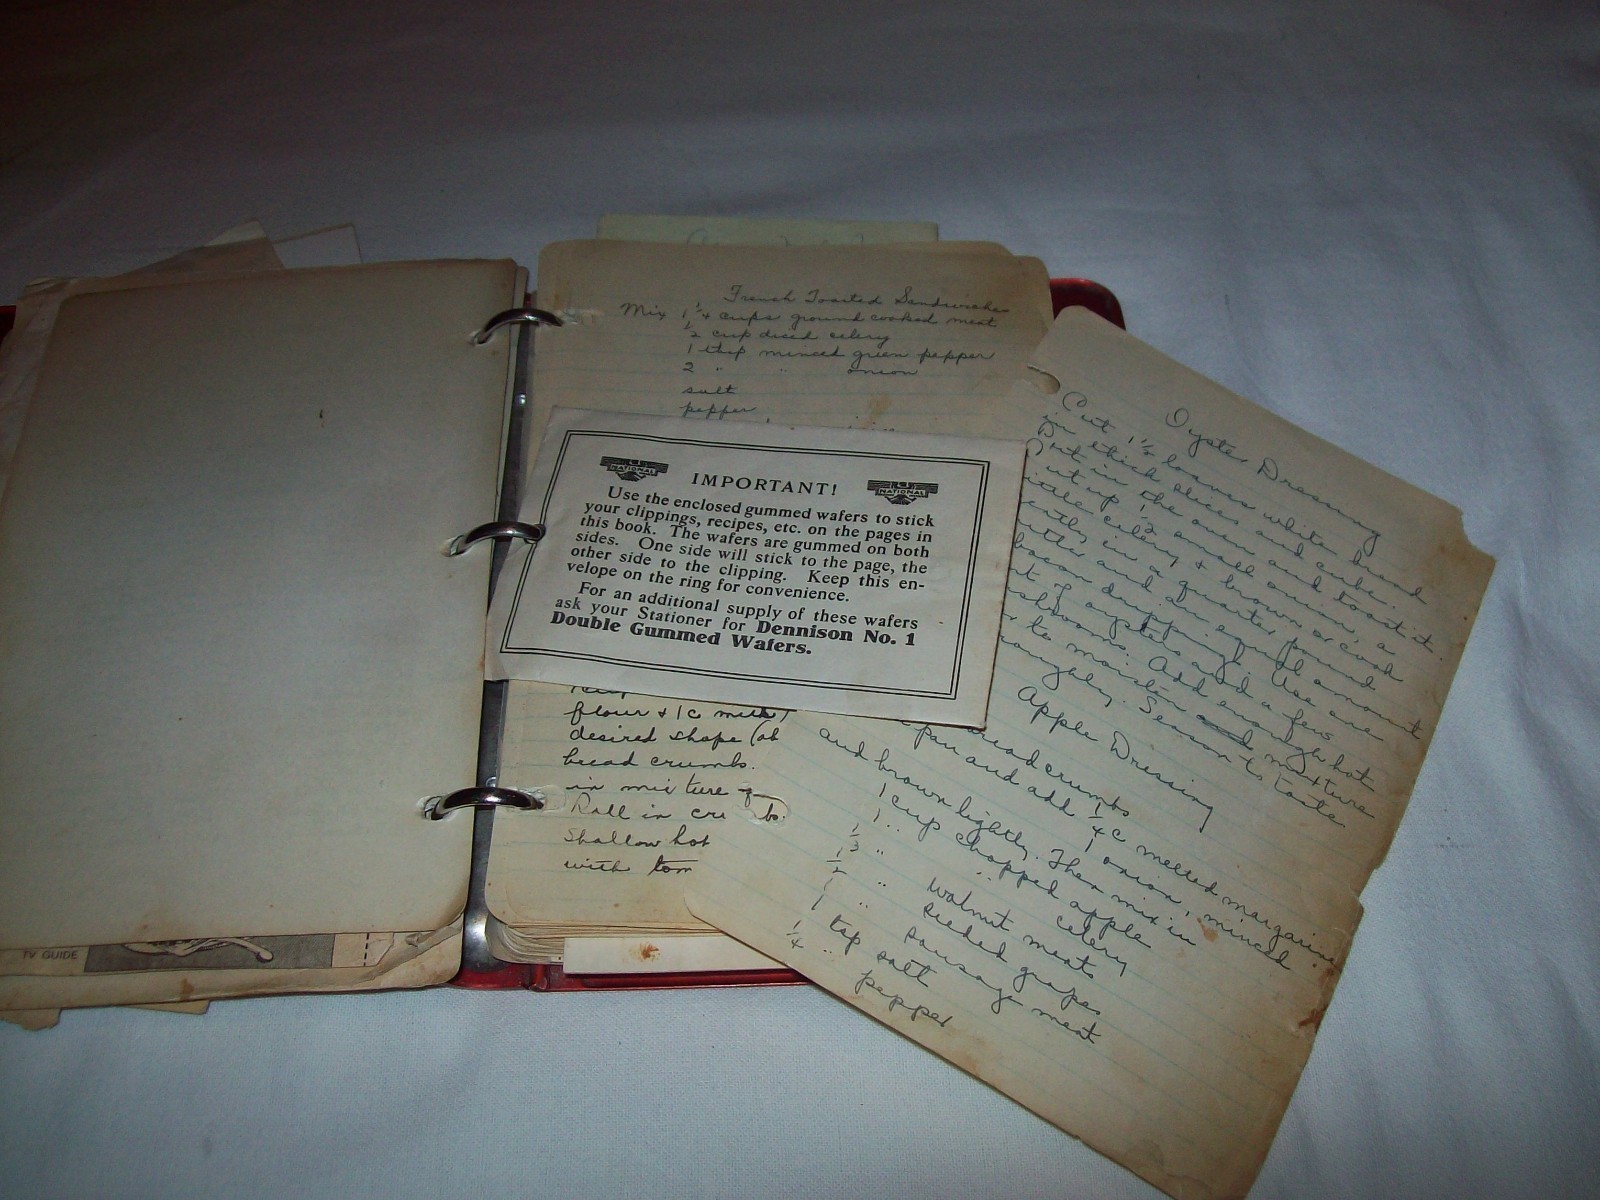 French Toasted Sandwiches
Mix 1 1/4 cups ground cooked meat
1/2 cup diced celery
1 tbsp minced green pepper
2 " " onion
salt
pepper
NATIONAL
NATIONAL
IMPORTANT!
Use the enclosed gummed wafers to stick
your clippings, recipes, etc. on the pages in
this book. The wafers are gummed on both
sides. One side will stick to the page, the
other side to the clipping. Keep this en-
velope on the ring for convenience.
For an additional supply of these wafers
ask your Stationer for Dennison No. 1
Double Gummed Wafers.
flour & 1 c milk
desired shape
bread crumbs.
in mixture
Roll in
shallow hot
with tom
TV GUIDE
Oyster Dressing
Cut 1 1/2 loaves white bread
in thick slices and cube.
Put in the oven and toast it.
ut up 1/2 small onion, a
ittle celery & brown or cook
ently in a quarter pound
utter and an equal amount
bacon drippings. Use one
nt of oysters and a few
ushrooms. Add enough hot
r to moisten and mixture
roughly. Season to taste.
Apple Dressing
bread crumbs
pan and add 1/4 c melted margarine
and brown lightly. 1 onion, minced
Then mix in
1 cup chopped apple
1 " " celery
1/3 " walnut meats
1/2 " seeded grapes
1 " sausage meat
1 tsp salt
1/4 " pepper